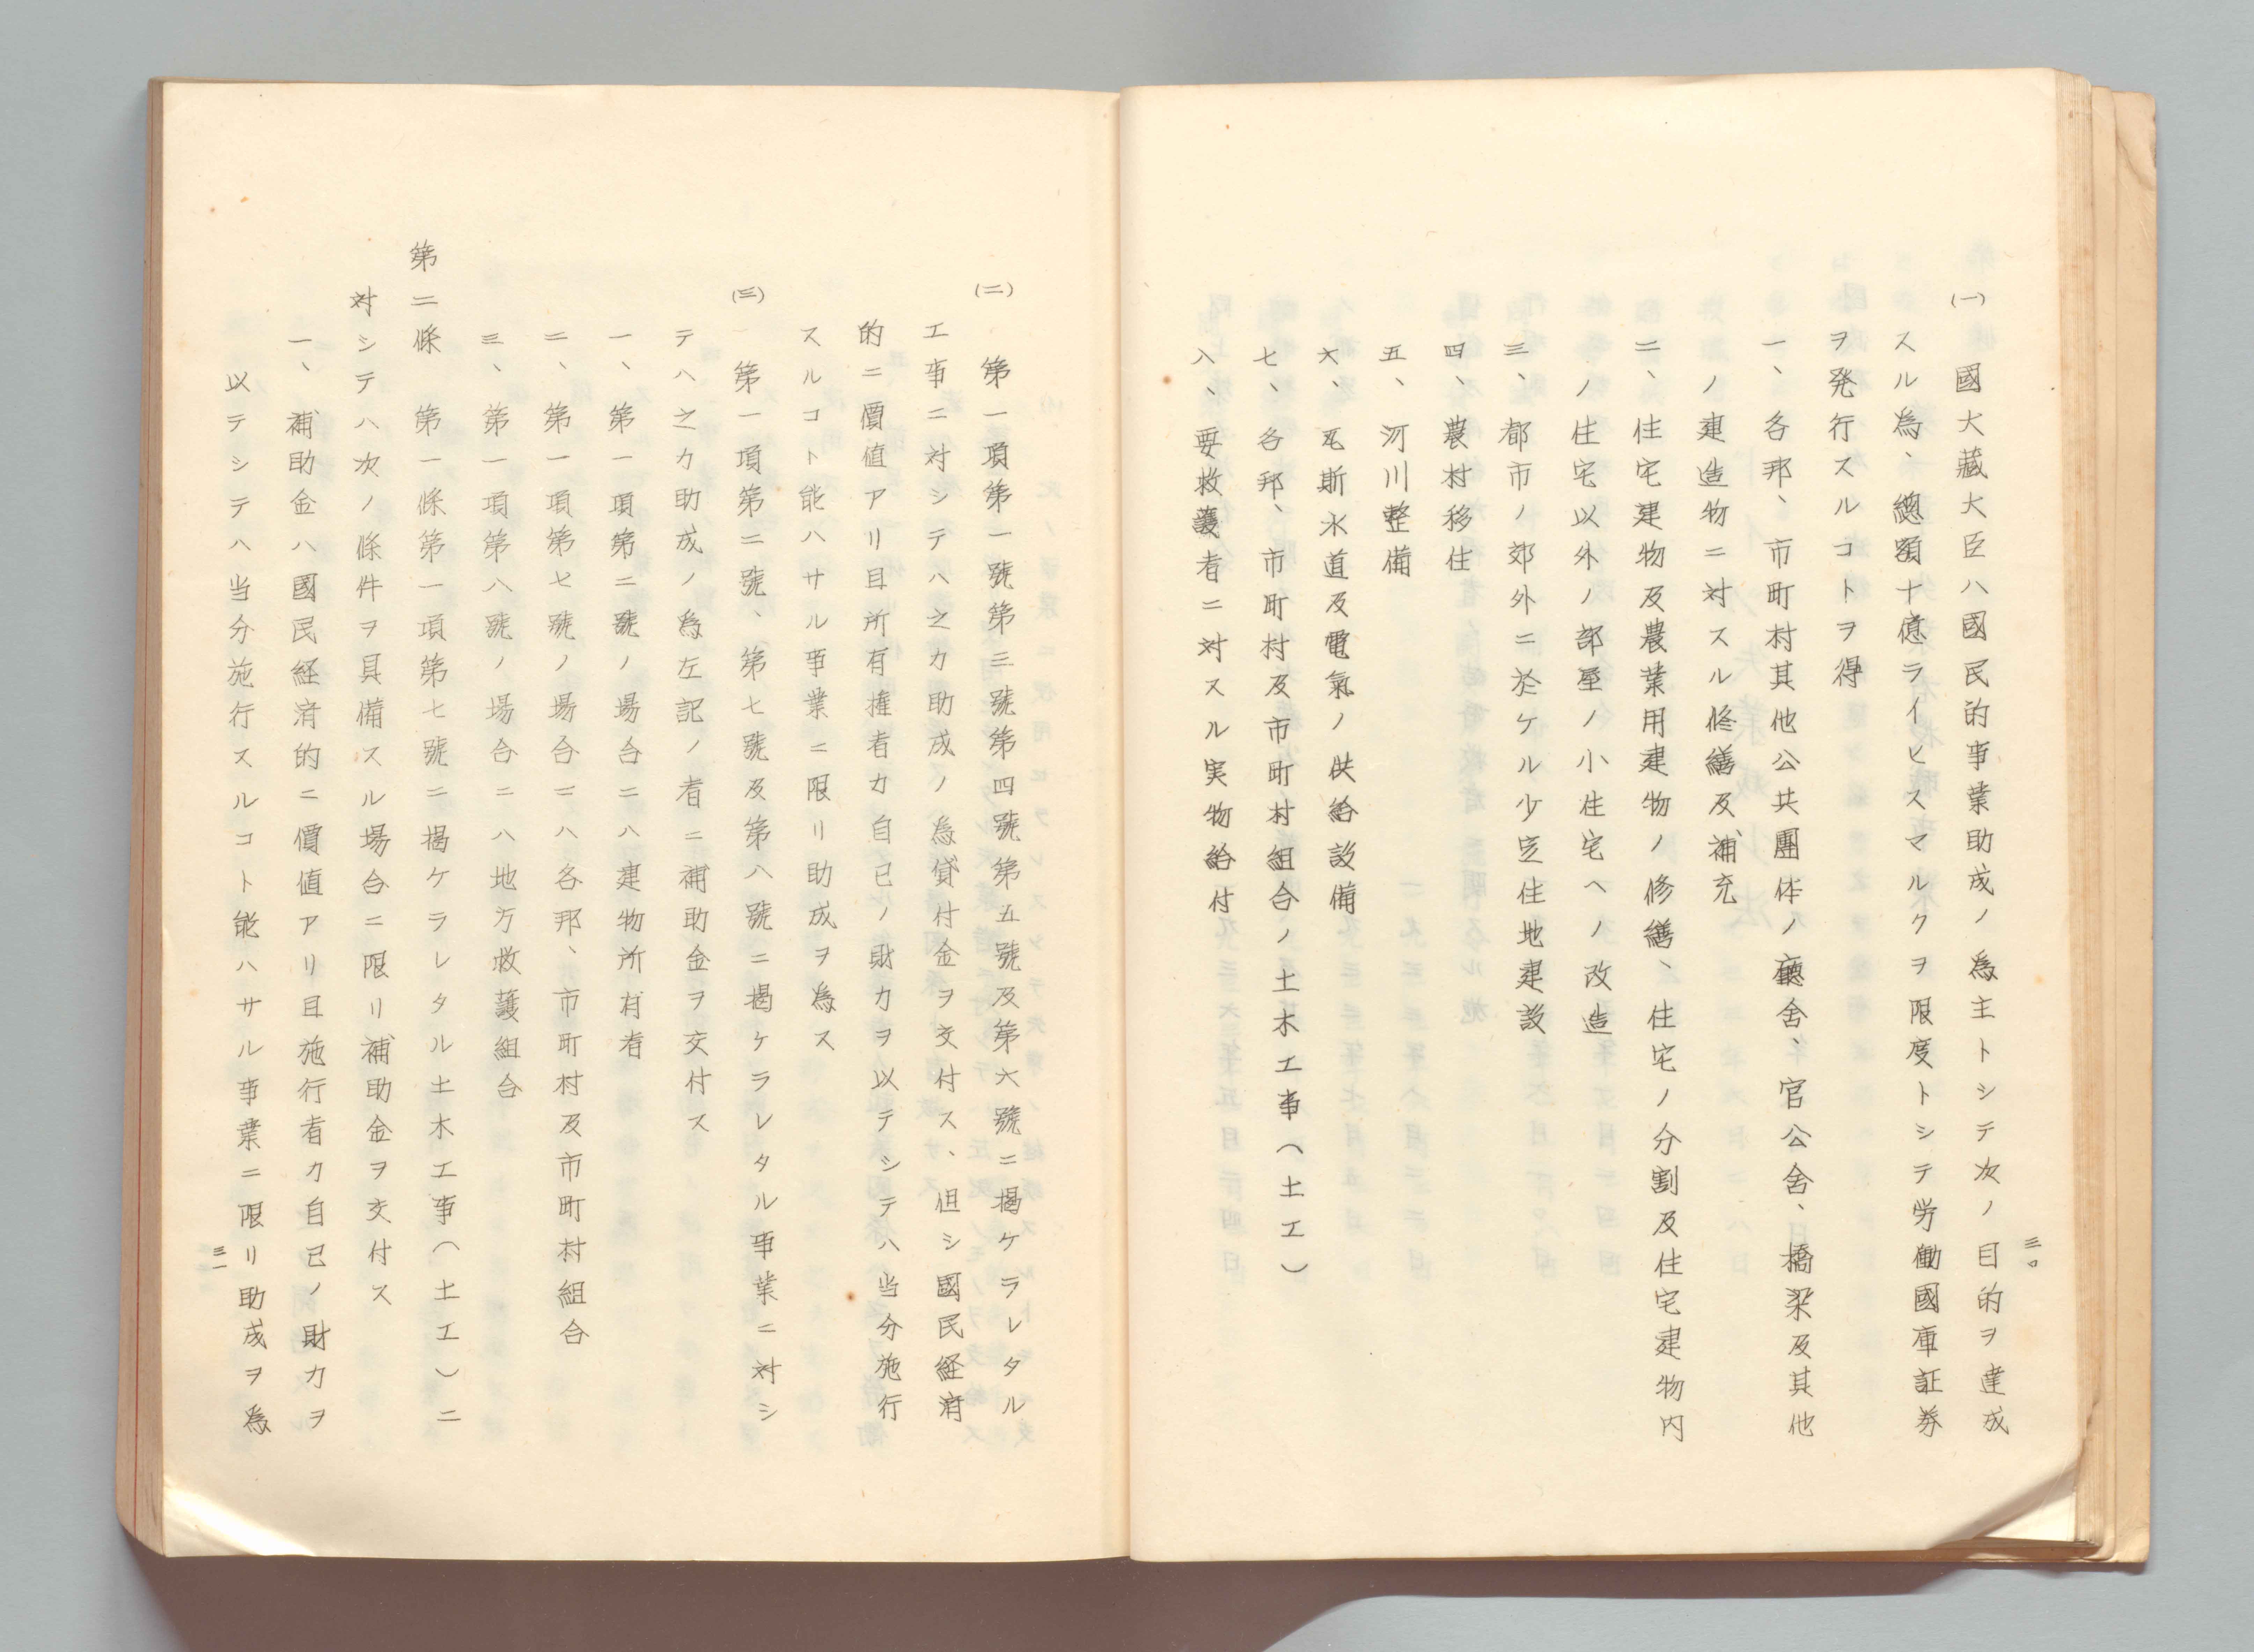 三〇
(一) 國大藏大臣ハ國民的事業助成ノ為主トシテ次ノ目的ヲ達成
スル為、總額十億ライヒスマルクヲ限度トシテ労働國庫証券
ヲ発行スルコトヲ得
一、各邦、市町村其他公共團体ノ廳舍、官公舍、橋梁及其他
ノ建造物ニ対スル修繕及補充
二、住宅建物及農業用建物ノ修繕、住宅ノ分割及住宅建物内
ノ住宅以外ノ部屋ノ小住宅ヘノ改造
三、都市ノ郊外ニ於ケル少定住地建設
四、農村移住
五、河川整備
六、瓦斯水道及電氣ノ供給設備
七、各邦、市町村及市町村組合ノ土木工事(土工)
八、要救護者ニ対スル実物給付
(二) 第一項第一號第三號第四號第五號及第六號ニ揭ケラレタル
工事ニ対シテハ之カ助成ノ為貸付金ヲ交付ス、但シ國民経済
的ニ價値アリ且所有權者カ自己ノ財力ヲ以テシテハ当分施行
スルコト能ハサル事業ニ限リ助成ヲ為ス
(三) 第一項第二號、第七號及第八號ニ揭ケラレタル事業ニ対シ
テハ之カ助成ノ為左記ノ者ニ補助金ヲ交付ス
一、第一項第二號ノ場合ニハ建物所有者
二、第一項第七號ノ場合ニハ各邦、市町村及市町村組合
三、第一項第八號ノ場合ニハ地方救護組合
第二條 第一條第一項第七號ニ揭ケラレタル土木工事(土工)ニ
対シテハ次ノ條件ヲ具備スル場合ニ限リ補助金ヲ交付ス
一、補助金ハ國民経済的ニ價値アリ且施行者カ自己ノ財力ヲ
以テシテハ当分施行スルコト能ハサル事業ニ限リ助成ヲ為
三一